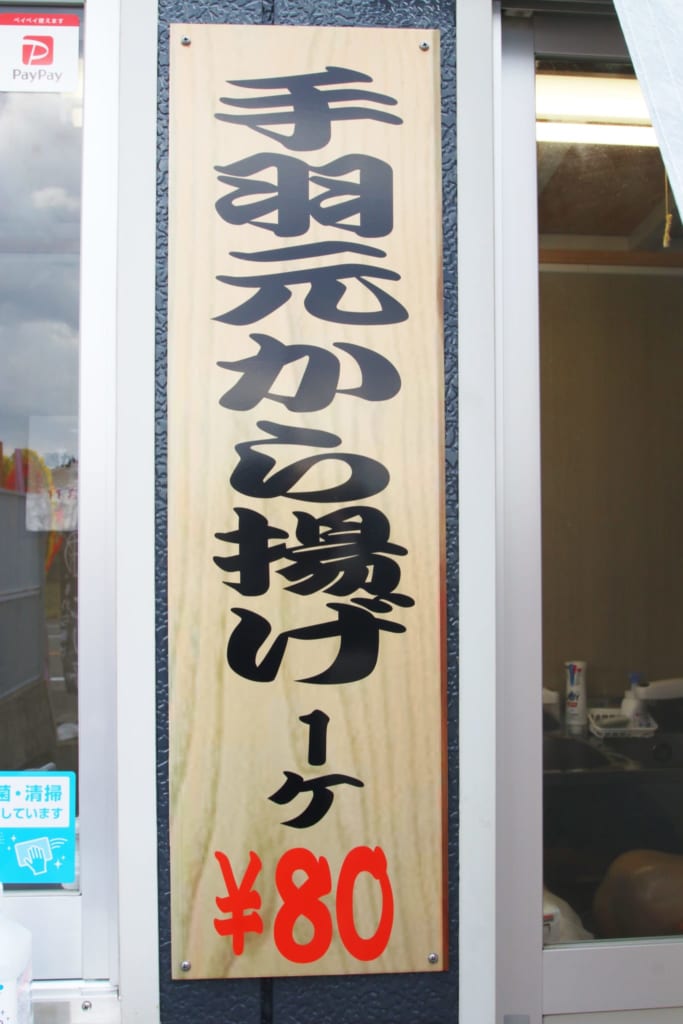 ペイペイ使えます
PayPay
手羽元から揚げ 1ケ
¥80
菌・清掃
しています